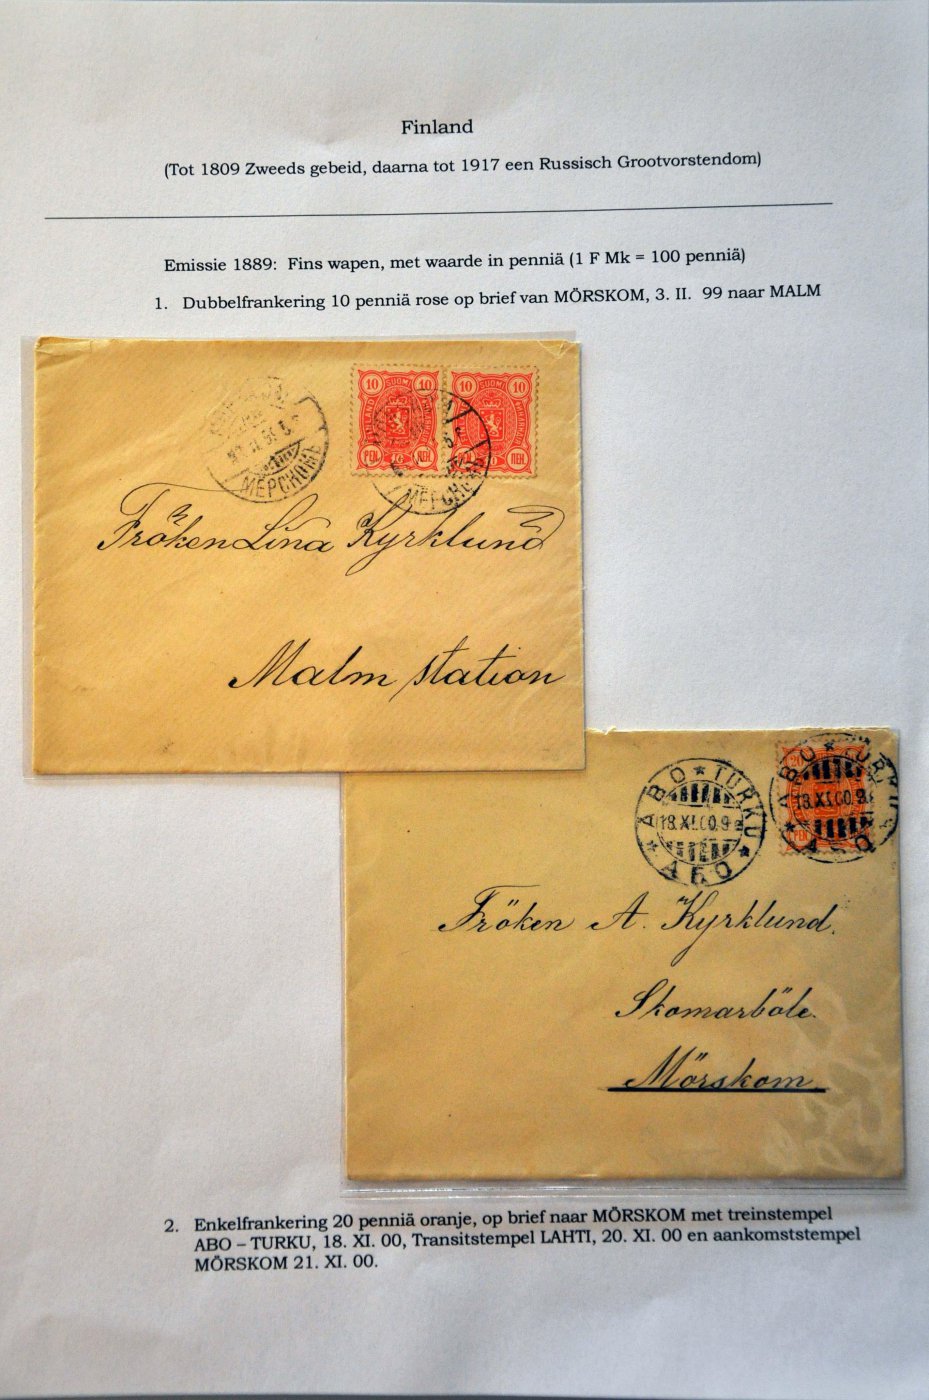 Finland
(Tot 1809 Zweeds gebeid, daarna tot 1917 een Russisch Grootvorstendom)
Emissie 1889: Fins wapen, met waarde in penniä (1 F Mk = 100 penniä)
1. Dubbelfrankering 10 penniä rose op brief van MÖRSKOM, 3. II. 99 naar MALM
10 SUOMI 10
FINLAND
PEN. 10 ПЕН.
10 SUOMI 10
ПЕН.
МЕРСКОМЪ
МЕРСКОМЪ
Fröken Lina Kyrklund
Malm station
ABO ★ TURKU
18.XI.00.9
★ АБО ★
ABO ★ TURKU
18.XI.00.9
★ АБО
PEN.
Fröken A. Kyrklund.
Skomarböle.
Mörskom
2. Enkelfrankering 20 penniä oranje, op brief naar MÖRSKOM met treinstempel
ABO – TURKU, 18. XI. 00, Transitstempel LAHTI, 20. XI. 00 en aankomststempel
MÖRSKOM 21. XI. 00.